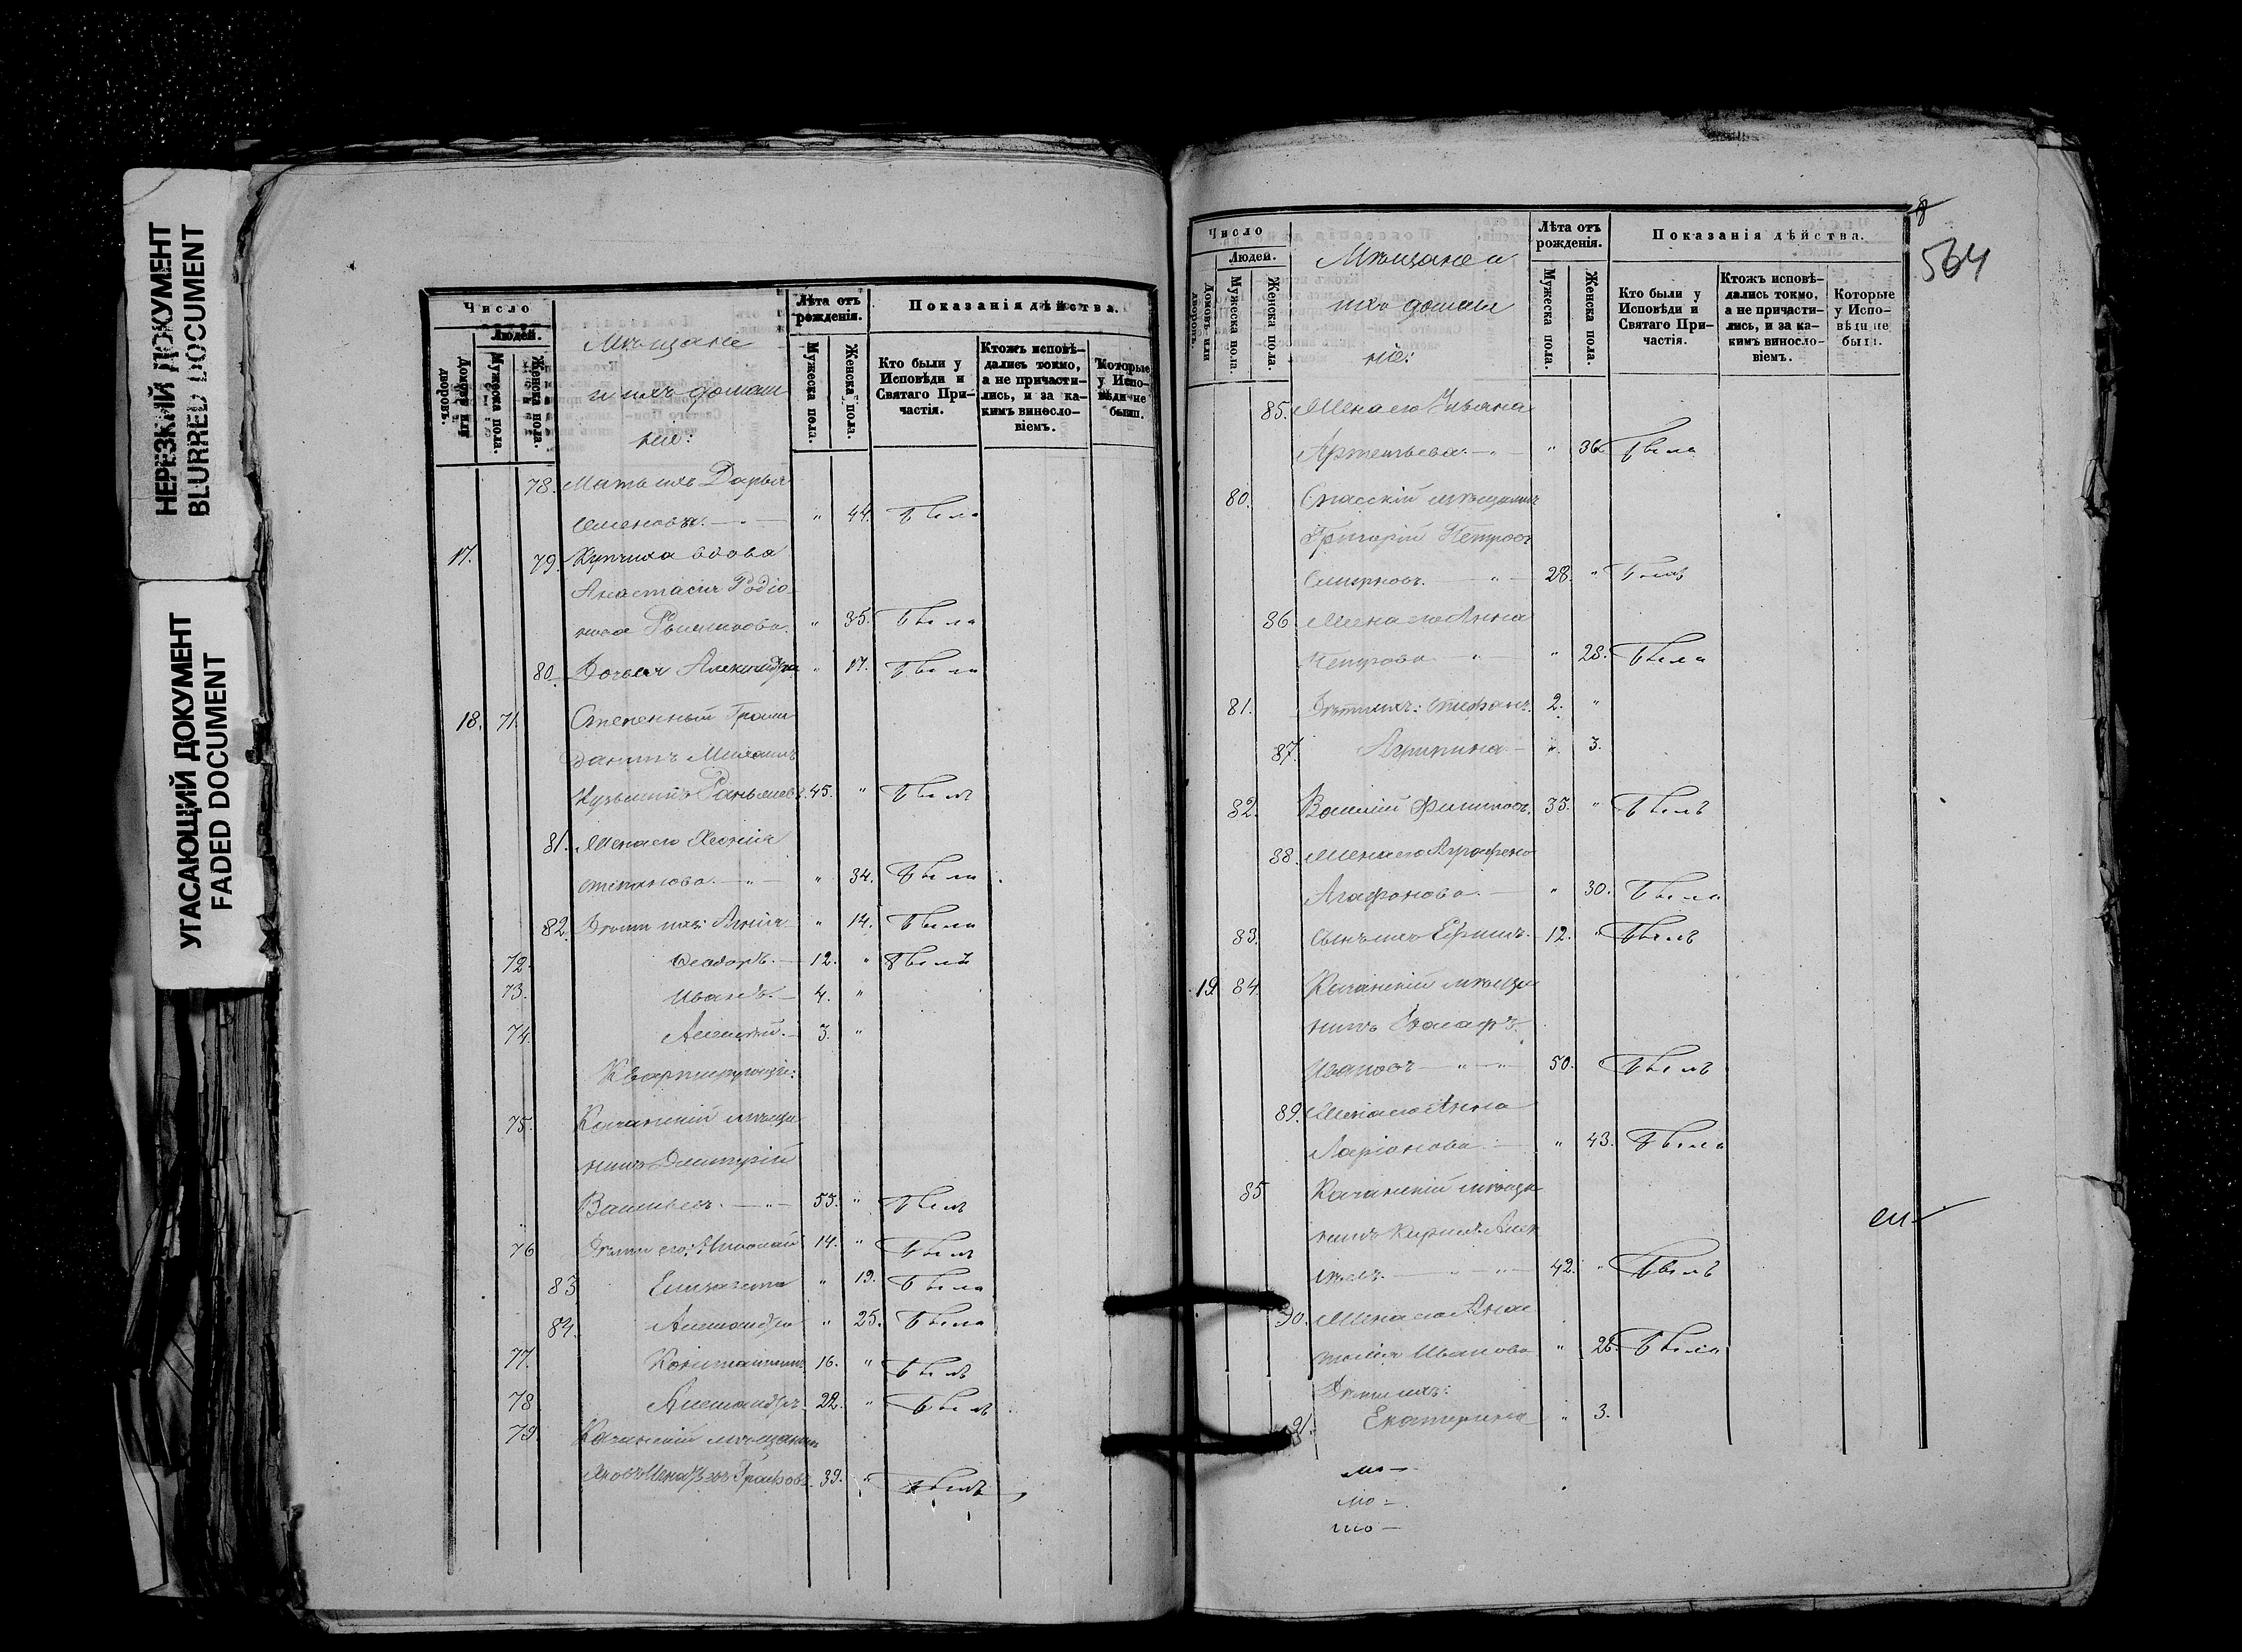 НЕРЕЗКИЙ ДОКУМЕНТ
BLURRED DOCUMENT
УГАСАЮЩИЙ ДОКУМЕНТ
FADED DOCUMENT
Число
Людей.
Домовъ или дворовъ.
Мужеска пола.
Женска пола.
Мѣщане
и ихъ домаш
ніе:
Лѣта отъ рожденія.
Мужеска пола.
Женска пола.
Показанія дѣйства.
Кто были у Исповѣди и Святаго Причастія.
Ктожъ исповѣдались токмо, а не причастились, и за какимъ винословіемъ.
Которые у Исповѣди не были.
78. Мать ихъ Дарья
Семенова. — " 44. Была
17. 79. Купчиха вдова
Анастасія Родіо
нова " 35. Была
80. Дочь ея Александра " 17. Была
18. 71. Степенный Граж
данинъ Михаилъ
Кузьминъ 45. " Былъ
81. Жена его Ксенія
Степанова — " — " 34. Была
82. Дѣти ихъ: " 14. Была
72. Ѳеодоръ. — 12. " Былъ
73. Иванъ. — 4. "
74. Алексѣй. — 3. "
Квартиранты:
75. мѣща
нинъ Дмитрій
Васильевъ. — " — 53. " Былъ
76 Дѣти его: Николай 14. " Былъ
83 Елизавета " 19. Была
84. Александра " 25. Была
77. Константинъ 16. " Былъ
78 Александръ 22. " Былъ
79. мѣщанинъ
39. " Былъ
8
564
Число
Людей.
Домовъ или дворовъ.
Мужеска пола.
Женска пола.
Мѣщане и
ихъ домаш
ніе:
Лѣта отъ рожденія.
Мужеска пола.
Женска пола.
Показанія дѣйства.
Кто были у Исповѣди и Святаго Причастія.
Ктожъ исповѣдались токмо, а не причастились, и за какимъ винословіемъ.
Которые у Исповѣди не были.
85. Жена его
Артемьева. — " — " 36 Была
80. Спасскій мѣщанинъ
Григорій Петровъ
Смирновъ. " — 28. " Былъ
86 Жена его Анна
Петрова — " — " 28. Была
81. Дѣти ихъ: Стефанъ. 2. "
87. Агрипина — " 3.
82. Василій Филиповъ. 35. " Былъ
88. Жена его Аграфена
Агафонова. — " 30. Была
83. Сынъ ихъ Ефимъ. 12. " Былъ
19. 84. мѣща
нинъ
Ивановъ — " — " 50. Былъ
89. Жена его Анна
Ларіонова — " 43. Была
85 мѣща
нинъ Кирилъ Алек
сѣевъ. — " — " — 42. " Былъ
90. Жена его Анас
тасія Иванова " 26. Была
Дѣти ихъ:
91. Екатерина " 3.